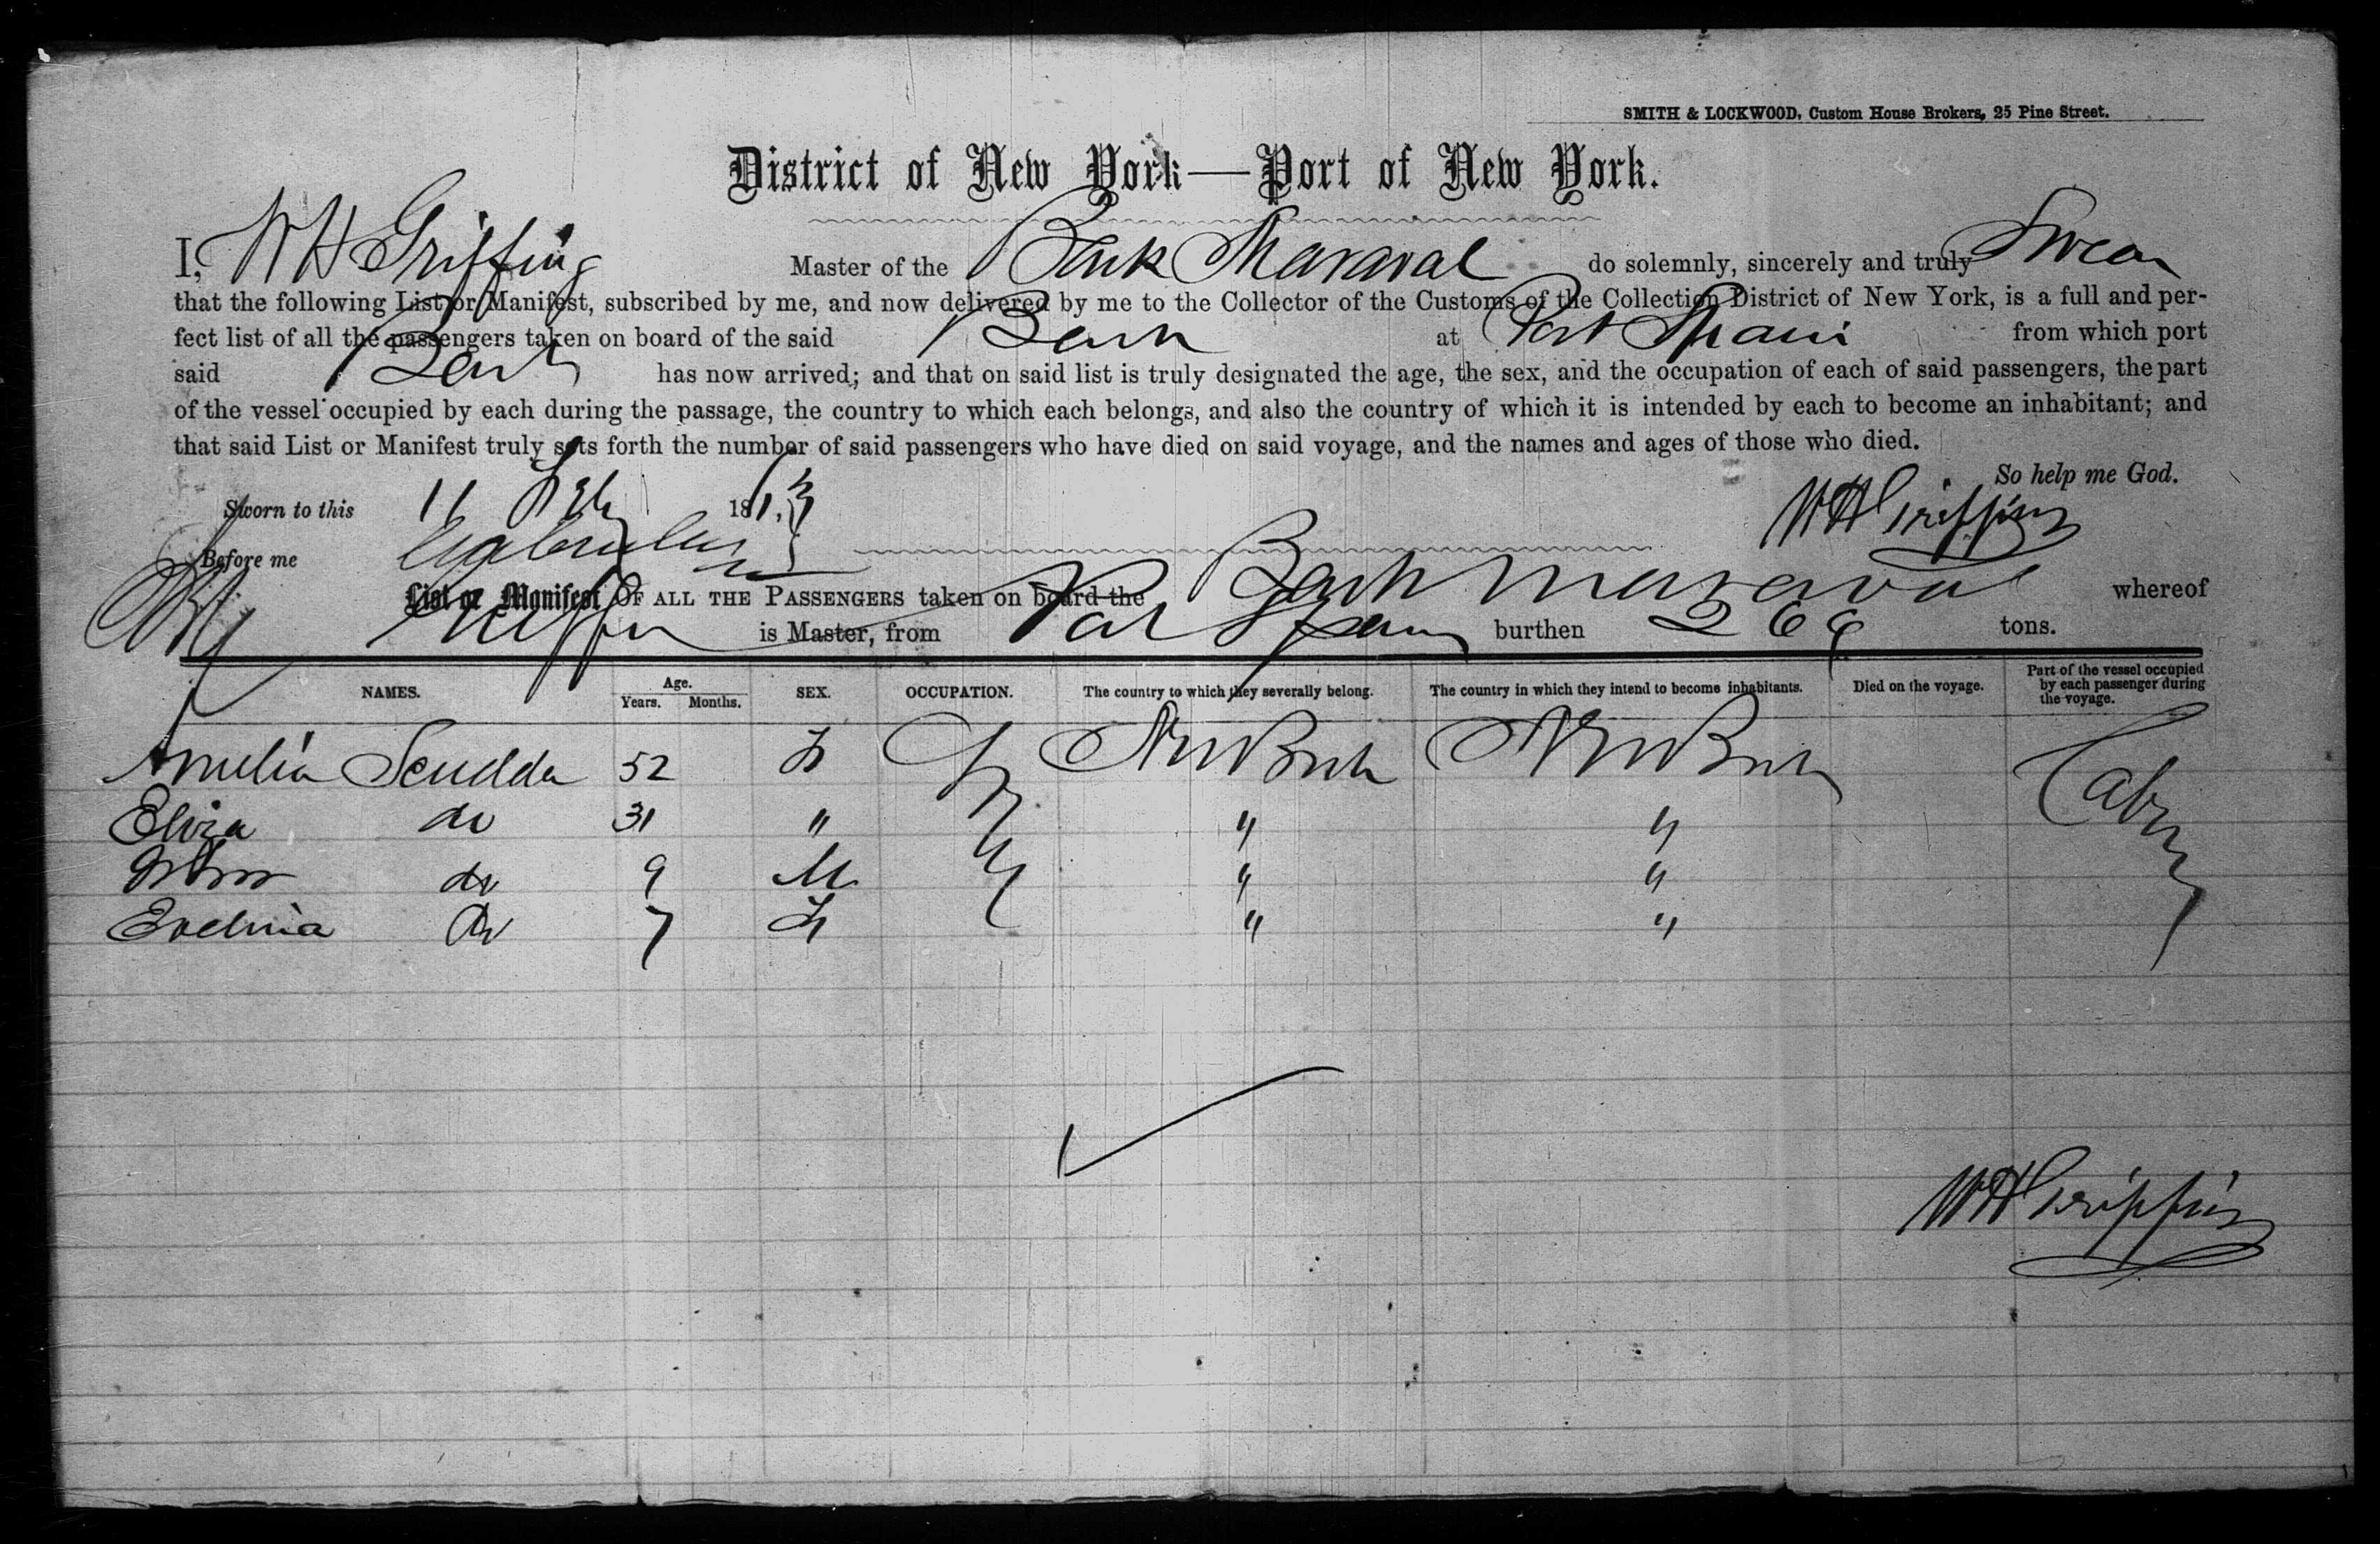 SMITH & LOCKWOOD, Custom House Brokers, 25 Pine Street.
District of New York—Port of New York.
I, W H Griffing Master of the Bark Maraval do solemnly, sincerely and truly Swear
that the following List or Manifest, subscribed by me, and now delivered by me to the Collector of the Customs of the Collection District of New York, is a full and per-
fect list of all the passengers taken on board of the said Bark at Port Spain from which port
said Bark has now arrived; and that on said list is truly designated the age, the sex, and the occupation of each of said passengers, the part
of the vessel occupied by each during the passage, the country to which each belongs, and also the country of which it is intended by each to become an inhabitant; and
that said List or Manifest truly sets forth the number of said passengers who have died on said voyage, and the names and ages of those who died.
So help me God.
Sworn to this 11 Feb 18 W H Griffing
Before me
List or Manifest OF ALL THE PASSENGERS taken on board the Bark Maraval whereof
Griffin is Master, from Port Spain burthen 269 tons.
NAMES. Age. Years. Months. SEX. OCCUPATION. The country to which they severally belong. The country in which they intend to become inhabitants. Died on the voyage. Part of the vessel occupied by each passenger during the voyage.
Amelia Scudder 52 F Cabin
Eliza do 31 " " "
do 9 M " "
Evelina do 7 F " "
W H Griffing